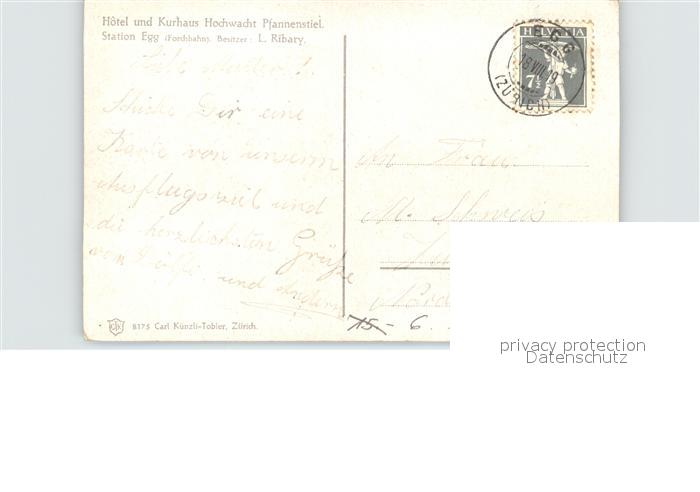 Hôtel und Kurhaus Hochwacht Pfannenstiel.
Station Egg (Forchbahn). Besitzer: L. Ribary.
Liebe Mutter!
Schicke Dir eine
Karte von unserm
Ausflugsziel und
die herzlichsten Grüße
vom und Andern
8175 Carl Künzli-Tobler, Zürich.
EGG
(ZÜRICH)
HELVETIA
7½
An Frau
M.
15 - 6.
privacy protection
Datenschutz